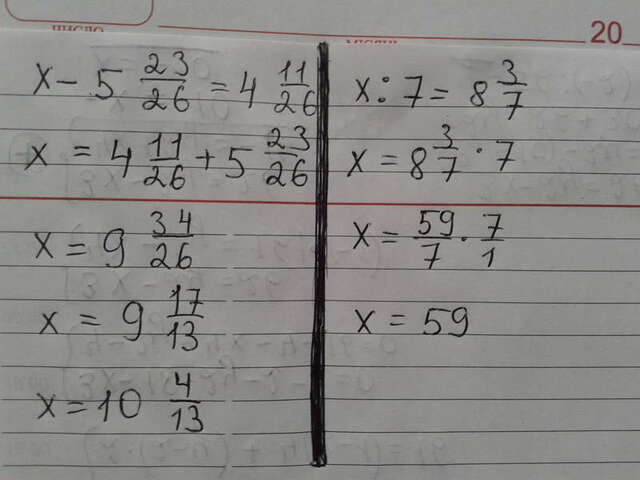 число
20
x - 5 23/26 = 4 11/26
x = 4 11/26 + 5 23/26
x = 9 34/26
x = 9 17/13
x = 10 4/13
x : 7 = 8 3/7
x = 8 3/7 · 7
x = 59/7 · 7/1
x = 59